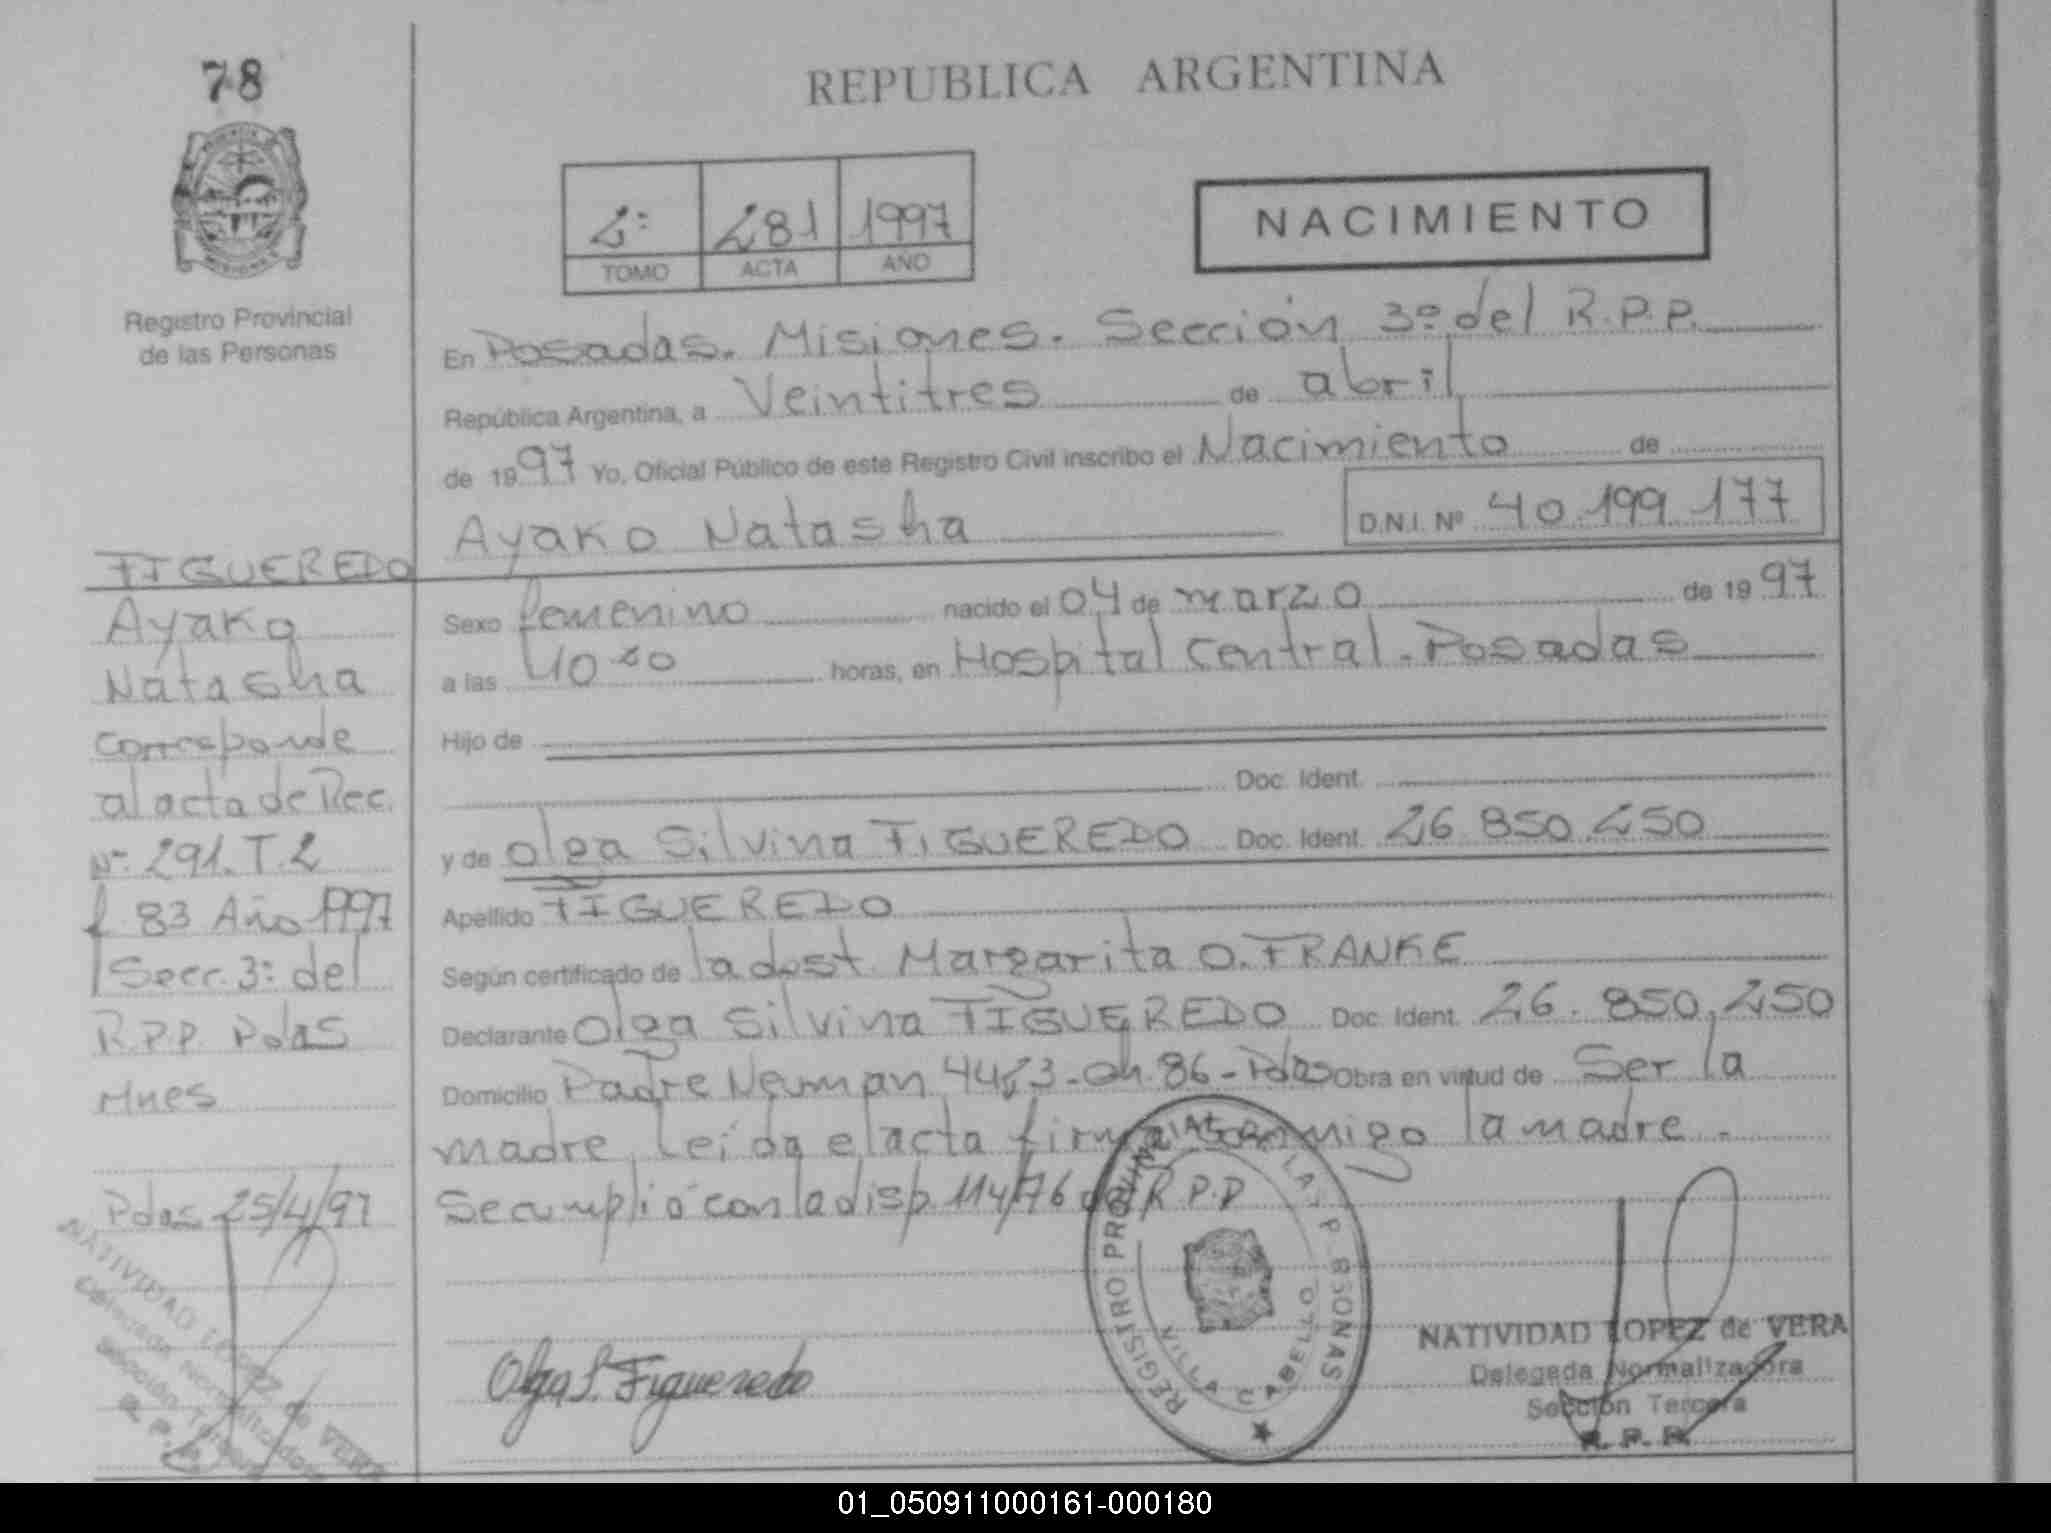 78
REPUBLICA ARGENTINA
2º 281 1997
TOMO ACTA AÑO
NACIMIENTO
Registro Provincial
de las Personas
En Posadas. Misiones. Sección 3º del R.P.P.
República Argentina, a Veintitres de abril
de 1997 Yo, Oficial Público de este Registro Civil inscribo el Nacimiento de
Ayako Natasha
D.N.I. Nº 40.199.177
FIGUEREDO
Ayako
Natasha
Corresponde
al acta de Rec.
Nº 291. T. 2
f 83 Año 1997
Secc. 3º del
R.P.P. Pdas
Mnes
Pdas 25/4/97
Sexo femenino nacido el 04 de marzo de 1997
a las horas, en Hospital Central. Posadas
Hijo de
Doc. Ident.
y de Olga Silvina FIGUEREDO Doc. Ident. 26 850 250
Apellido FIGUEREDO
Según certificado de la obst. Margarita O. FRANKE
Declarante Olga Silvina FIGUEREDO Doc. Ident. 26.850.250
Domicilio Padre Neuman Ch. 86 - Pdas Obra en virtud de Ser la
madre leida el acta firma conmigo la madre -
Se cumplió con la disp. 114/76 del R.P.P
Olga S. Figueredo
REGISTRO PROVINCIAL DE LAS PERSONAS
VILLA CABELLO
NATIVIDAD LOPEZ de VERA
Delegada Normalizadora
Sección Tercera
R. P. P.
NATIVIDAD LOPEZ de VERA
Delegada Normalizadora
Sección Tercera
R. P. P.
01_050911000161-000180